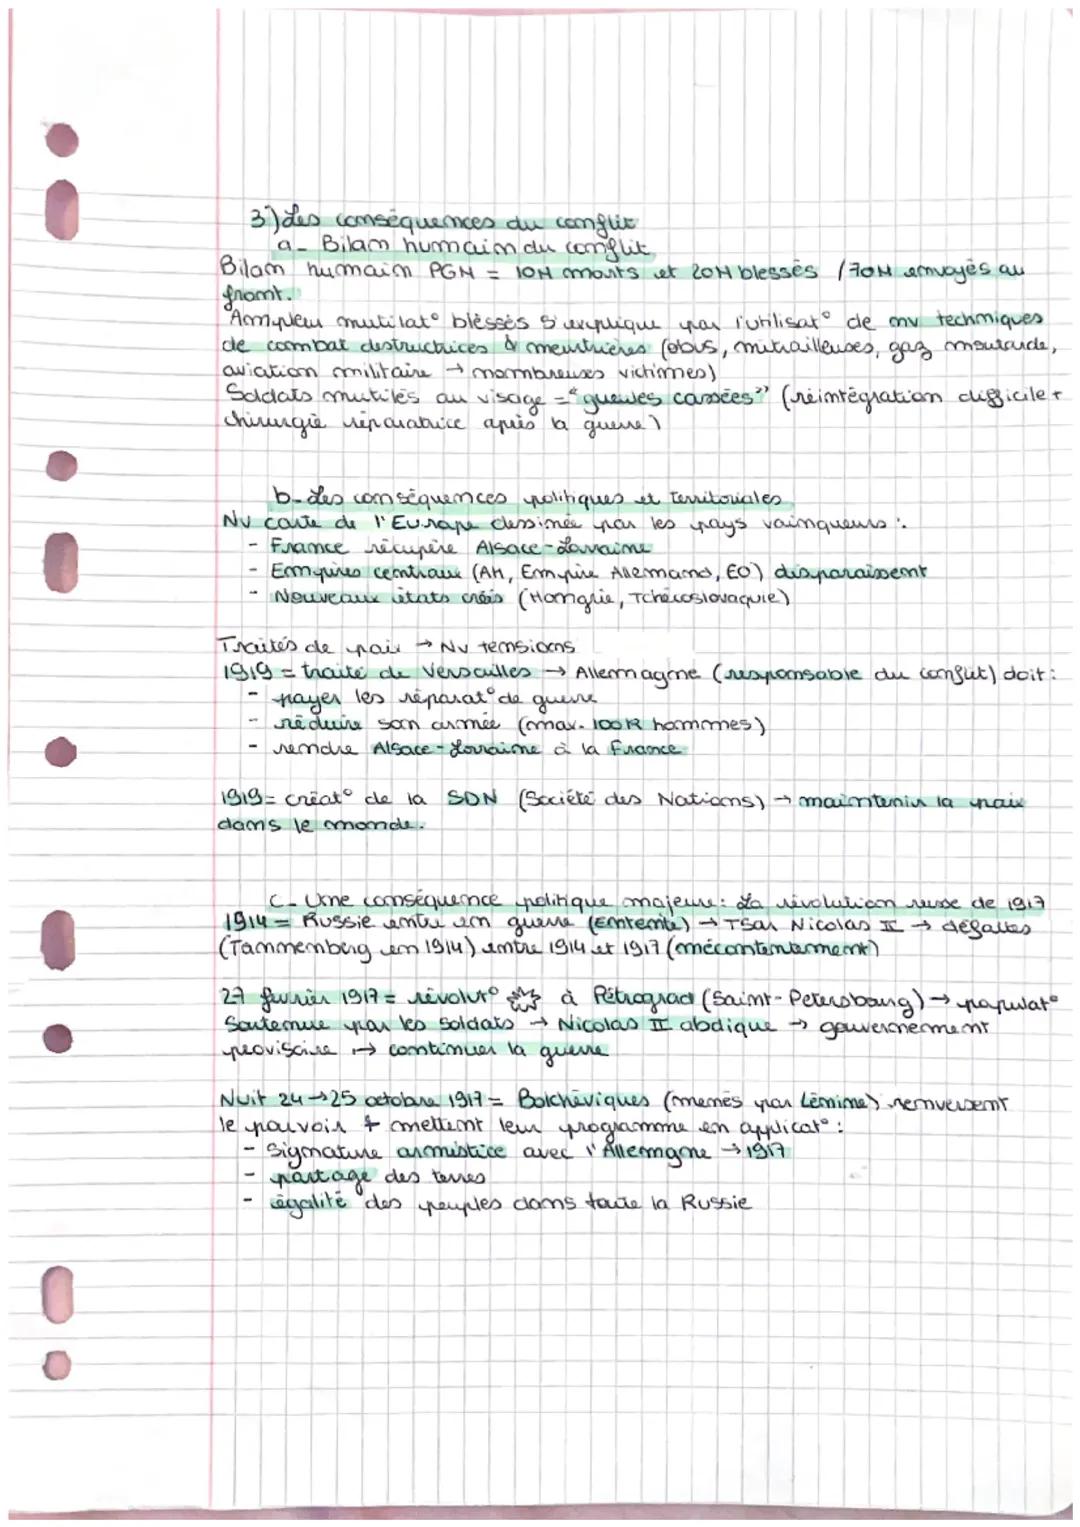 3°) Les conséquences du conflit
a- Bilan humain du conflit
Bilan humain PGM = 10M morts et 20M blessés / 70M envoyés au
front.
Ampleur mutilat° blessés s'explique par l'utilisat° de nv techniques
de combat destructrices & meurtrières (obus, mitrailleuses, gaz moutarde,
aviation militaire → nombreuses victimes)
Soldats mutilés au visage = "gueules cassées" (réintégration difficile +
chirurgie réparatrice après la guerre)
b- Les conséquences politiques et territoriales
Nv carte de l'Europe dessinée par les pays vainqueurs :
- France récupère Alsace-Lorraine
- Empires centraux (AH, Empire Allemand, EO) disparaissent
- Nouveaux états créés (Hongrie, Tchécoslovaquie)
Traités de paix → Nv tensions
1919 = traité de Versailles → Allemagne (responsable du conflit) doit :
- payer les réparat° de guerre
- réduire son armée (max. 100K hommes)
- rendre Alsace-Lorraine à la France
1919 = créat° de la SDN (Société des Nations) → maintenir la paix
dans le monde.
c- Une conséquence politique majeure : La révolution russe de 1917
1914 = Russie entre en guerre (Entente) → Tsar Nicolas II → défaites
(Tannenberg en 1914) entre 1914 et 1917 (mécontentement)
27 février 1917 = révolut° à Pétrograd (Saint-Petersbourg) → populat°
Soutenue par les soldats → Nicolas II abdique → gouvernement
provisoire → continuer la guerre
Nuit 24→25 octobre 1917 = Bolchéviques (menés par Lénine) renversent
le pouvoir & mettent leur programme en applicat° :
- Signature armistice avec l'Allemagne → 1917
- partage des terres
- égalité des peuples dans toute la Russie